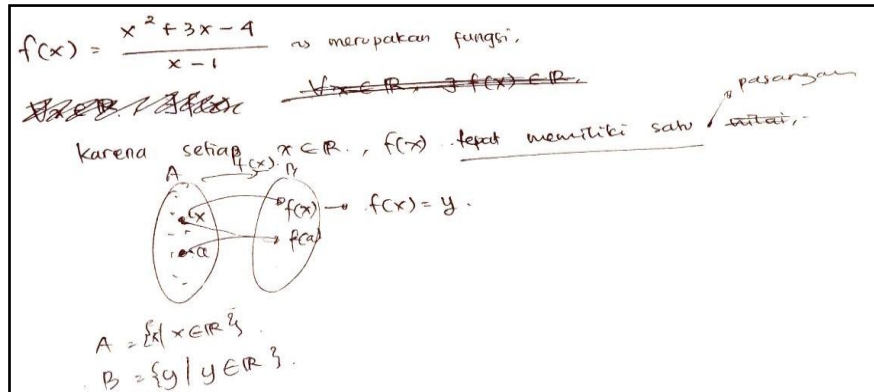 f(x) = \frac{x^2 + 3x - 4}{x - 1} ~> merupakan fungsi.
∀x ∈ ℝ, ∃ f(x) ∈ ℝ.
pasangan
karena setiap x ∈ ℝ., f(x) tepat memiliki satu nilai,
A f(x) B
x f(x) → f(x) = y.
a f(a)
A = {x | x ∈ ℝ}.
B = {y | y ∈ ℝ}.